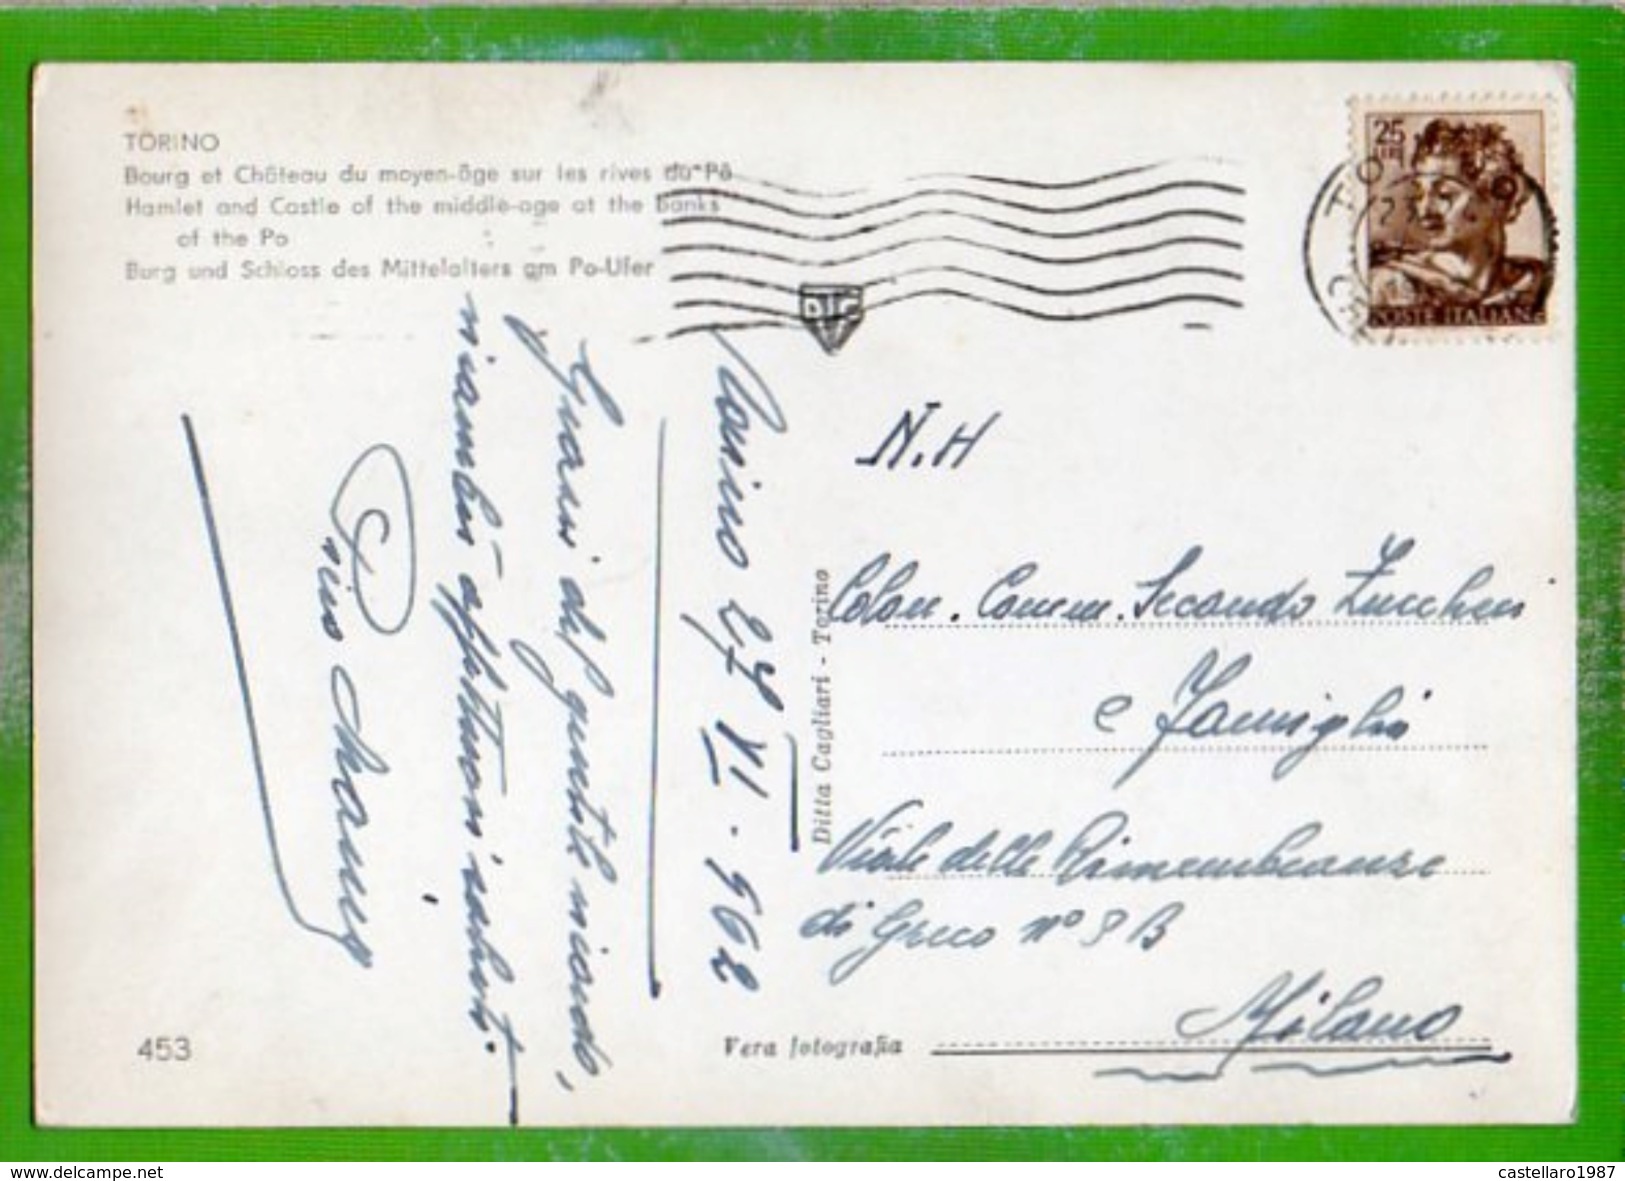 TORINO
Bourg et Château du moyen-âge sur les rives du Pô
Hamlet and Castle of the middle-age at the banks
of the Po
Burg und Schloss des Mittelalters am Po-Ufer
25
LIRE
POSTE ITALIANE
TORINO
Torino 27 VI. 962
Grazie del gentile ricordo,
ricambio affettuosi saluti.
N.H
Colon. Comm. Secondo Zucchini
e Famiglia
Viale delle Rimembranze
di Greco nº 8 B
Milano
Ditta Cagliari - Torino
Vera fotografia
453
www.delcampe.net
castellaro1987